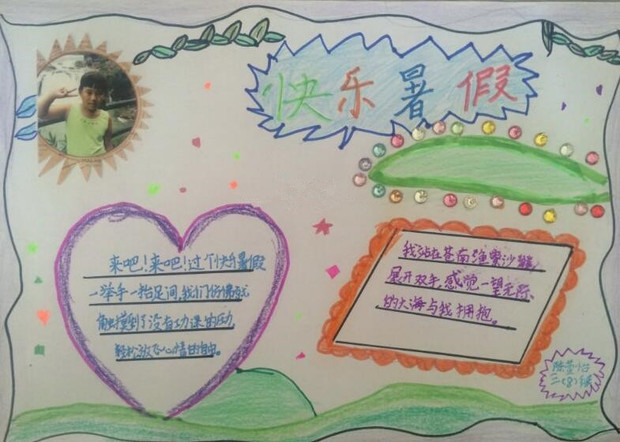 快乐暑假
来吧!来吧!过个快乐暑假
一举手一抬足间,我们仿佛就
触摸到了没有功课的压力,
轻松放飞心情的自由。
我站在苍南渔寮沙滩,
展开双手,感觉一望无际
的大海与我拥抱。